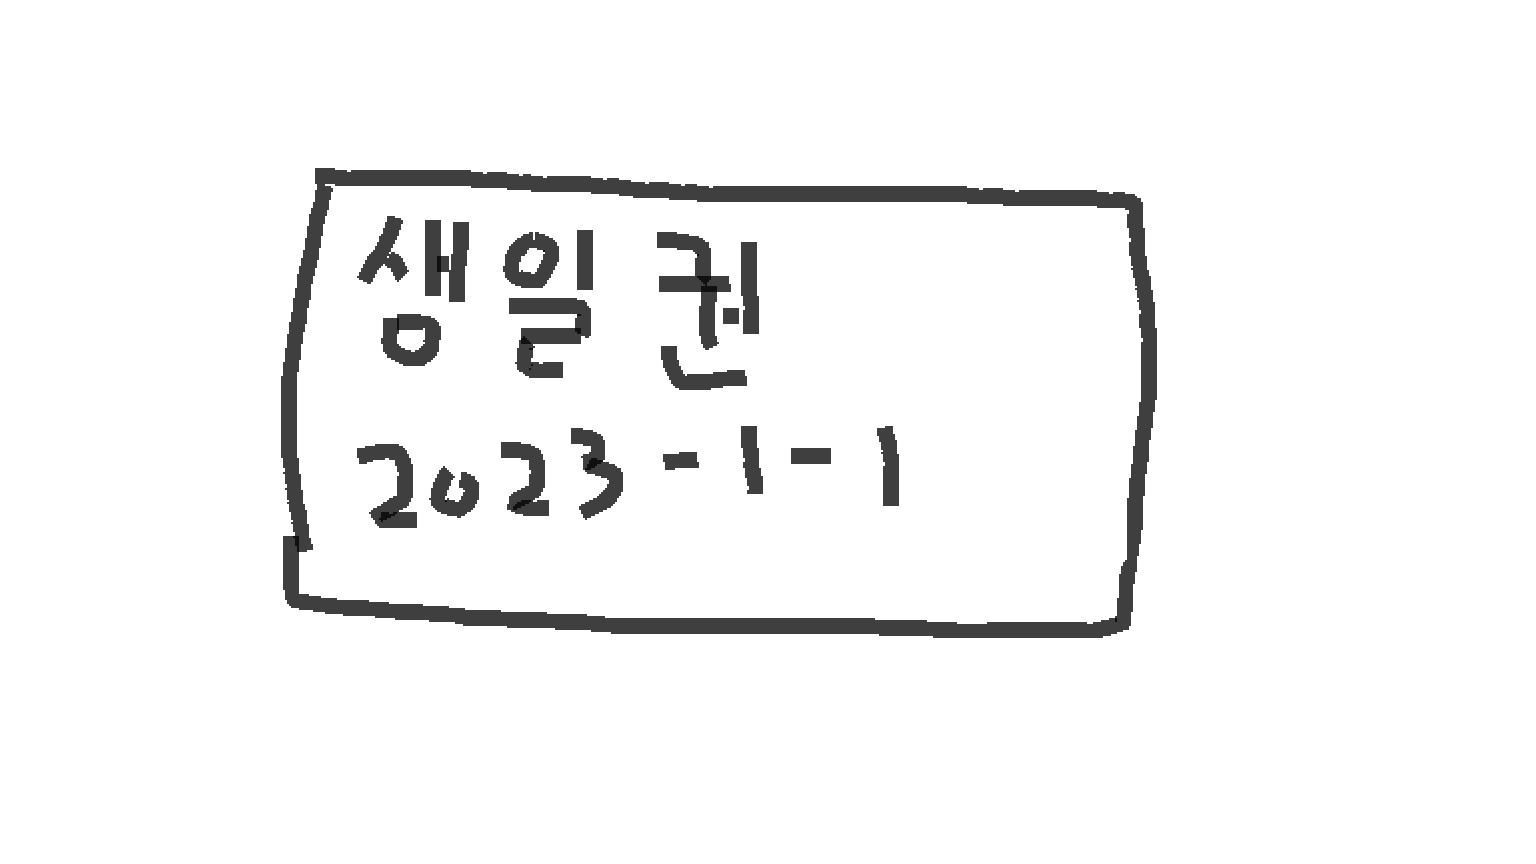 생일권
2023-1-1